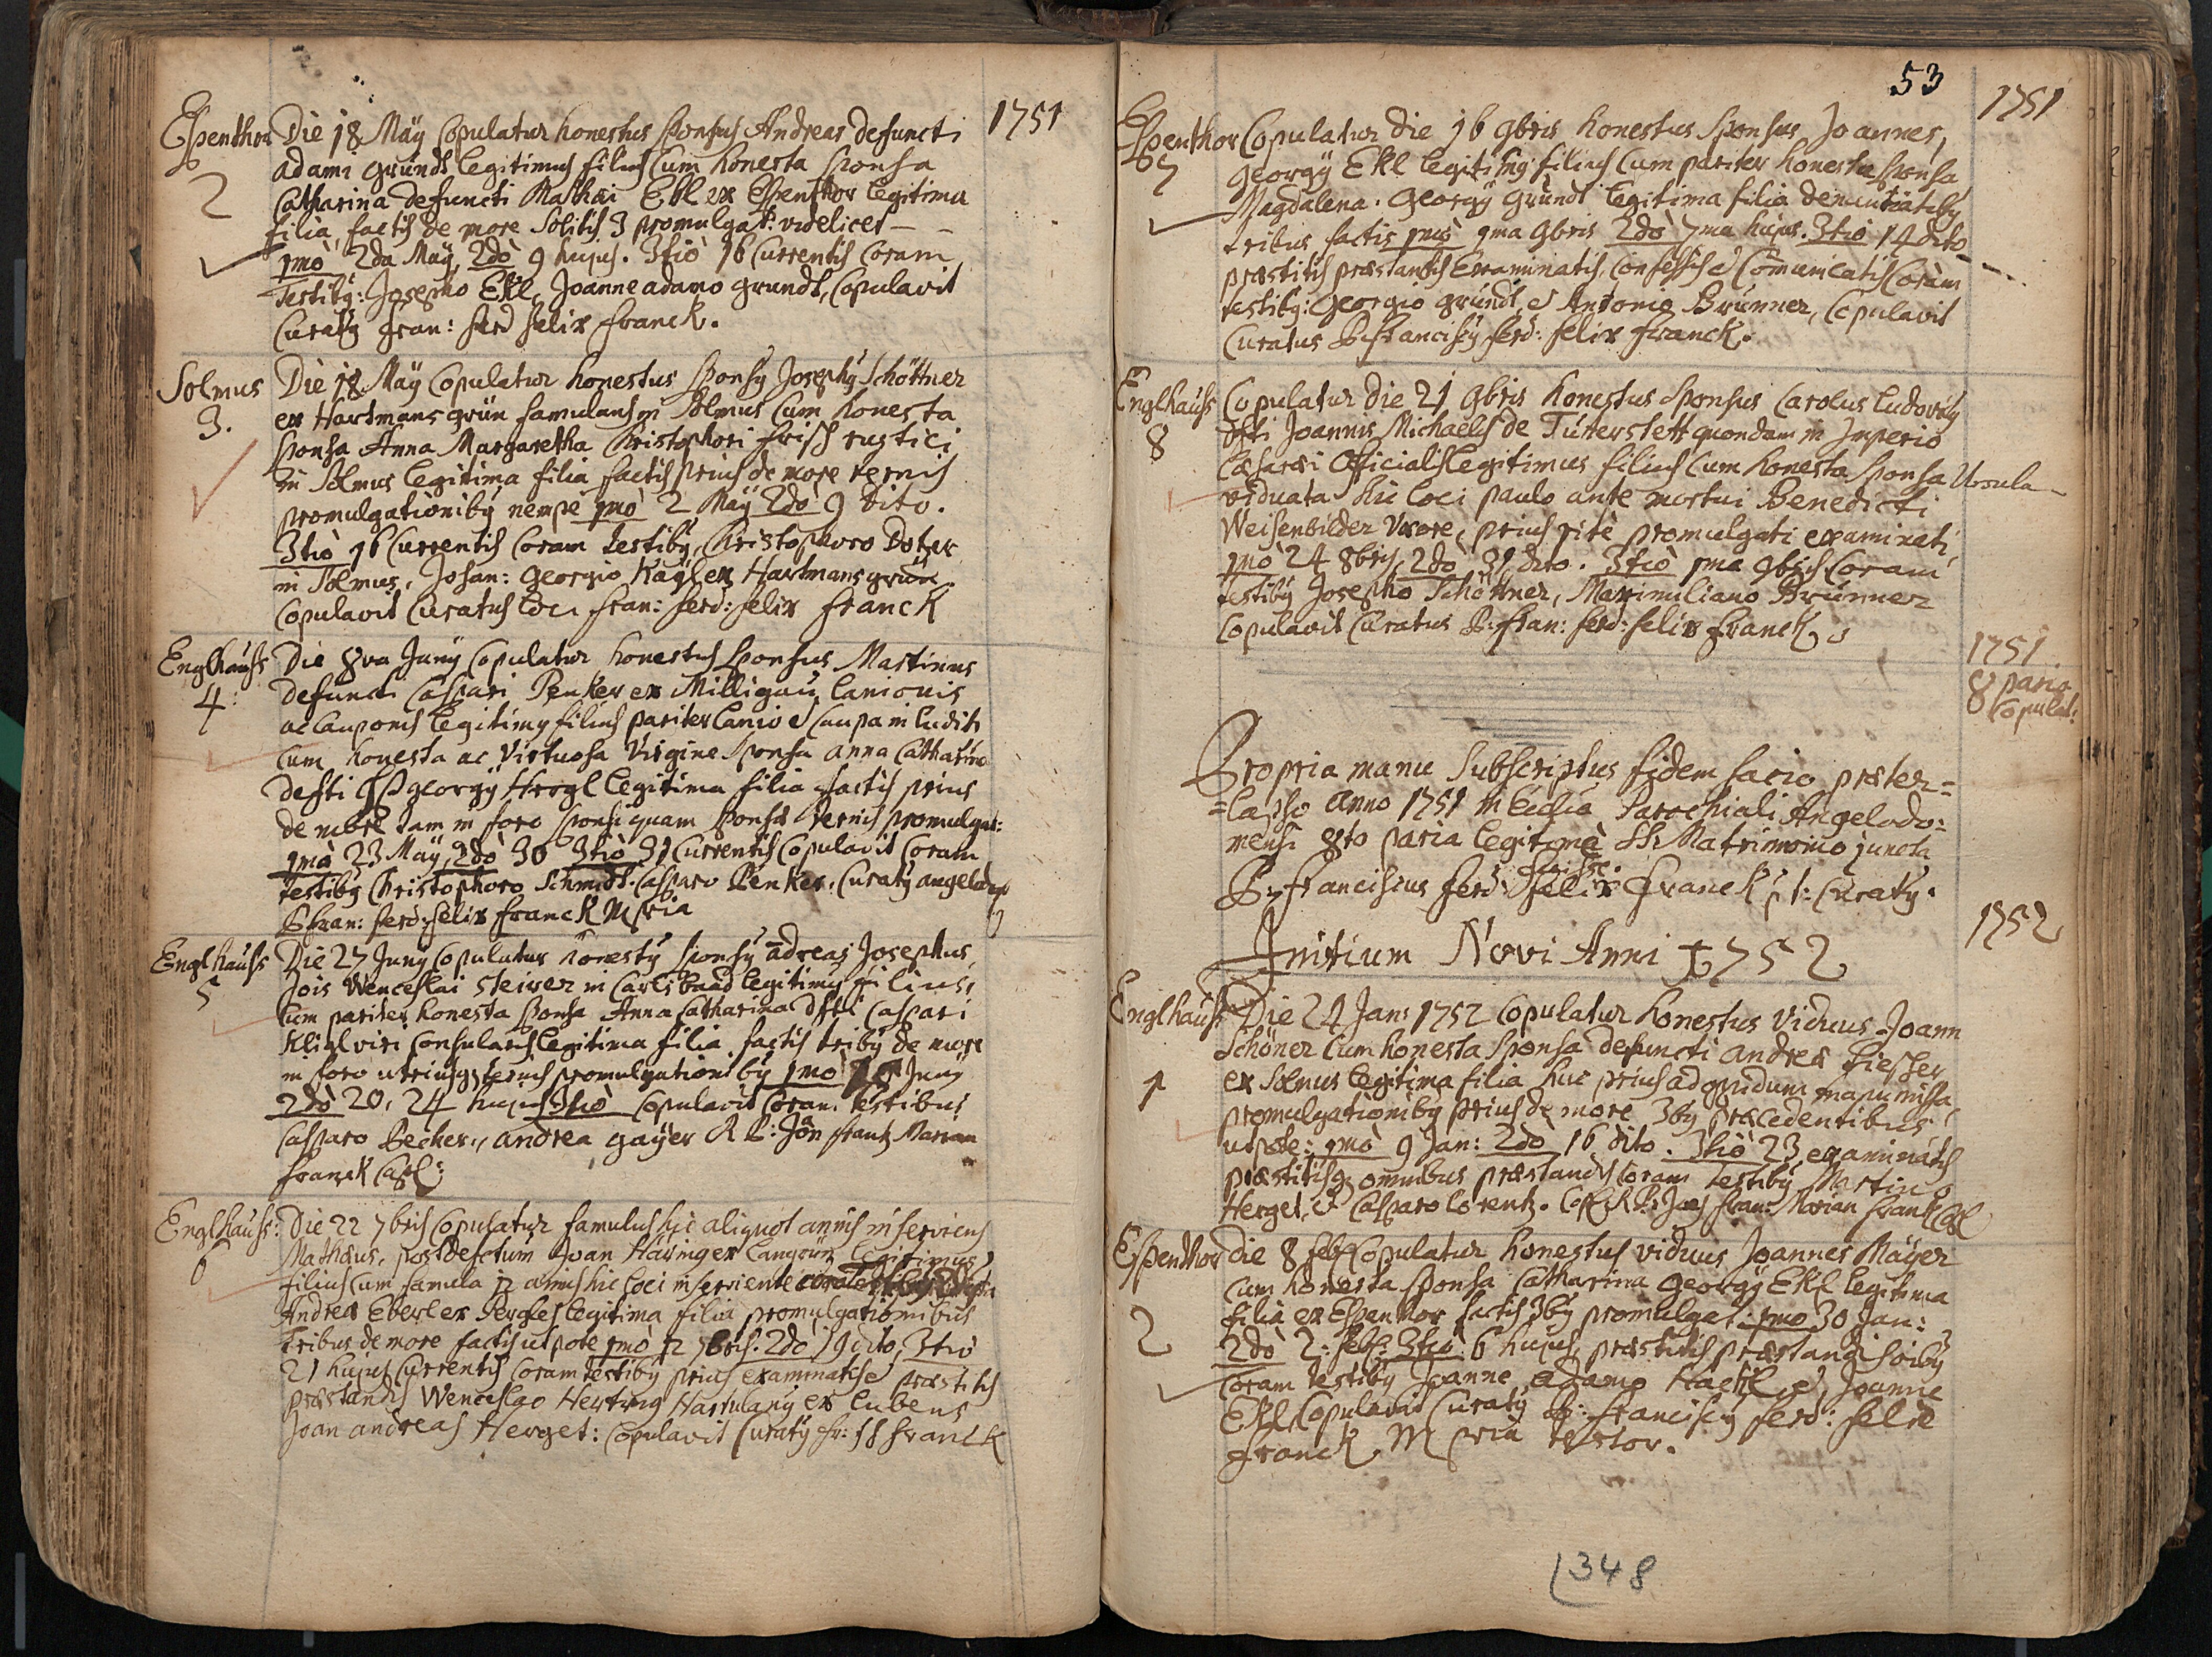 1751
Espenthor Die 18 Maÿ Copulatur honestus Sponsus Andreas defuncti
2 adami gründl legitimus filius Cum honesta Sponsa
Catharina defuncti Mathai Ekl ex Espenthor legitima
filia, factis de more Solitis 3 promulgat: videlicet — –
1mo 2da Maÿ, 2do 9 hujus. 3tiò 16 Currentis Coram
Testibȝ: Josepho Ekl, Joanne adamo grundl, Copulavit
Curatȝ fran: ferd felix franck.
Solmus Die 18 Maÿ Copulatur honestus Sponsȝ Josephȝ Schöttner
3. ex Hartmansgrün famulans in Solmus Cum honesta
Sponsa Anna Margaretha Christophori frisch rustici
in Solmus legitima filia factis prius de more ternis
promulgationibȝ nempe 1mò 2 Maÿ 2dò 9 dito.
3tiò 16 Currentis Coram testibȝ, Christophoro Dotzer
in Solmus, Johan: Georgio Kaÿl ex Hartmansgrün
Copulavit Curatus loci fran: ferd: felix franck
Englhauss Die 8va Junÿ Copulatur honestus Sponsus Martinus
4: defuncti Caspari Penker ex Milligau, lanionis
ac Cauponis legitimȝ filius pariter lanio et Caupa in luditz
Cum honesta ac Virtuosa Virgine Sponsa anna Catharina
defti georgÿ Hergl legitima filia factis prius
de more tam in foro Sponsi quam Sponsæ ternis promulgat:
1mà 23 Maÿ, 2dò 30 3tiò 31 Currentis Copulavit Coram
testibȝ Christophoro Schmidt. Casparo Penker. Curatȝ angelodom
P fran: ferd: felix franck Mpria
Englhauss Die 27 Junÿ Copulatur honestȝ Sponsȝ andreas Josephus
5 Jois Wenceslai Steirer in Carlsbaad legitimȝ filius,
Cum pariter honesta Sponsa Anna Catharina dfti Caspari
Klial viri Consularis legitima filia, factis tribȝ de more
in foro utriusqȝ ternis promulgationibȝ 1mò Junÿ
2dò 20, 24 hujus 3tiò Copulavit Coram testibus
Casparo Becher, andrea gaÿer R P: Jôn frantz Marian
franck Capl:
Englhauss: Die 22 7bris Copulatur famulus hic aliquot annis inserviens
6 Mathæus, post defctum Joan Häringer legitimus
filius Cum famula 12 annis hic loci inserviente
Andrea Eberl ex Sergles legitima filia promulgationibus
Tribus de more factis utpote 1mò 12 7bris. 2dò 19 dito, 3tiò
21 hujus Currentis Coram testibȝ prius examinatis et præstitis
præstandis Wenceslao Hertwig Hartulanȝ ex lubens
Joan andreas Herget: Copulavit Curatȝ fr: ff franck
53
1751
Espenthor Copulatur die 16 9bris honestus Sponsus Joannes,
7 georgÿ Ekl legitimȝ filius Cum pariter honesta Sponsa
Magdalena. georgÿ gründl legitima filia denuntiatibȝ
tribus factis 1mò 1ma 9bris 2dò 7ma hujus. 3tiò 14 dito
præstitis præstandis Examinatis, Confessis et Comunicatis Coram
testibȝ: georgio gründl, et Antonio Brunner, Copulavit
Curatus P. Franciscȝ ferd: felix franck.
Englhauss Copulatur die 21 9bris honestus Sponsus Carolus ludovicȝ
8 dfti Joannis Michaelis de Tütterstett quondam in Imperio
Cæsarei Officialis legitimus filius Cum honesta Sponsa Ursula
viduata hic loci paulo ante mortui Benedicti
Weisenbilder Uxore, prius rite promulgati examinati
1mò 24 8bris, 2dò 31 dito. 3tiò 1ma 9bris. Coram
testibȝ Josepho Schöttner, Maximiliano Brünner
Copulavit Curatus P. fran: ferd: felix franck.
1751.
8 paria
Copulat:
Propria manu Subscriptus fidem facio præter=
=lapso anno 1751 in Ecclia Parochiali Angelodo=
mensi 8to paria legitimè SS. Matrimonio juncta
fuisse.
P. Franciscus ferd: felix franck p t: Curatȝ.
1752
Initium Novi Anni 1752
Englhauss Die 24 Jan: 1752 Copulatur honestus viduus Joann
1 Schöner Cum honesta Sponsa defuncti andreæ
ex Solmus legitima filia huc prius ad opidum manumissa,
promulgationibȝ prius de more 3bȝ præcedentibus
utpote: 1mò 9 Jan: 2dò 16 dito. 3tiò 23 examinatis
præstitisqȝ omnibus præstandis Coram testibȝ Martino
Herget, et Casparo lorentz. Cop R P: Joes Franc Marian frank Capl
Espenthor die 8 feb Copulatur honestus viduus Joannes Maÿer
2 Cum honesta Sponsa Catharina georgÿ Ekl legitima
filia ex Espenthor factis 3bȝ promulgat: 1mo 30 Jan:
2dò 2: feb: 3tiò 6 hujus, præstitis præstandis oibȝ
Coram testibȝ Joanne adamo Hackl et Joanne
Ekl, Copulavit Curatȝ P: franciscȝ ferd: felix
franck Mpria testor.
348